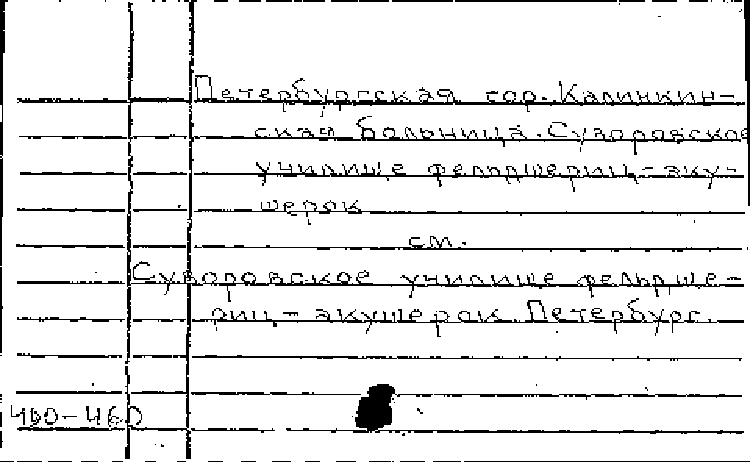 Петербургская гор. Калинкин-
ская больница. Суворовское
училище фельдшериц-аку-
шерок
см.
Суворовское училище фельдше-
риц-акушерок. Петербург.
400-460